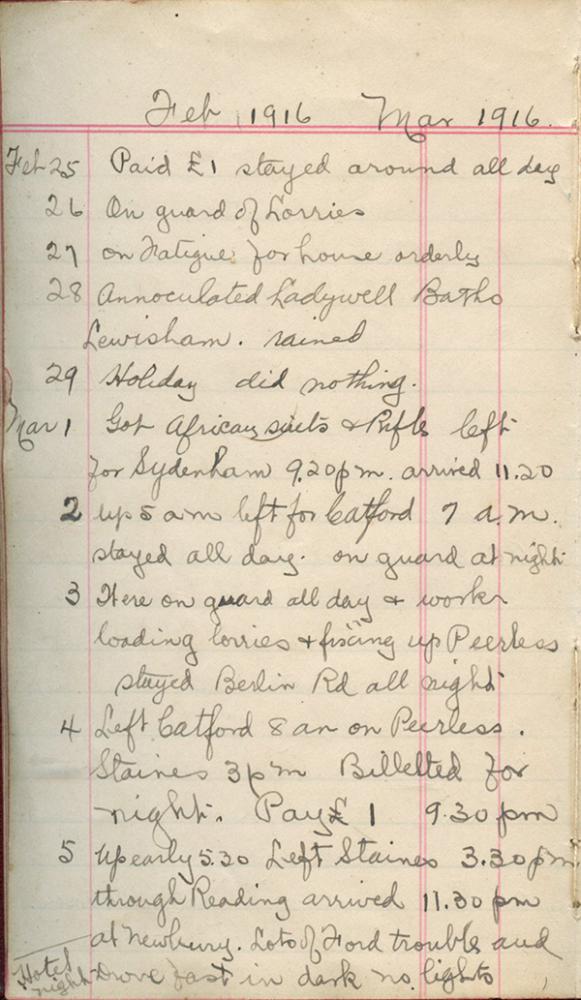 Feb 1916 Mar 1916.
Feb 25 Paid £1 stayed around all day
26 On guard of Lorries
27 on Fatigue for house orderly
28 Annoculated Ladywell Baths
Lewisham. rained
29 Holiday did nothing.
Mar 1 Got African suits & Rifle left
for Sydenham 9.20pm. arrived 11.20
2 up 5 am left for Catford 7 a.m.
stayed all day. on guard at night
3 Here on guard all day & worker
loading lorries & fixing up Peerless
stayed Berlin Rd all night
4 Left Catford 8 am on Peerless.
Staines 3pm Billetted for
night. Pay £1 9.30 pm
5 Up early 5.30 Left Staines 3.30pm
through Reading arrived 11.30 pm
at Newbury. Lots of Ford trouble and
Hotel night Drove fast in dark no lights